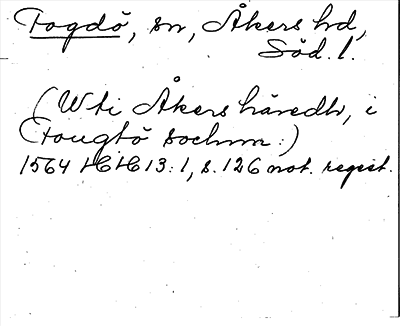 Fogdö, sn, Åkers hd,
Söd. l.
(Wti Åkers häredh, i
Fougtö sochnn:)
1564 HH 13:1, s. 126 not. regist.